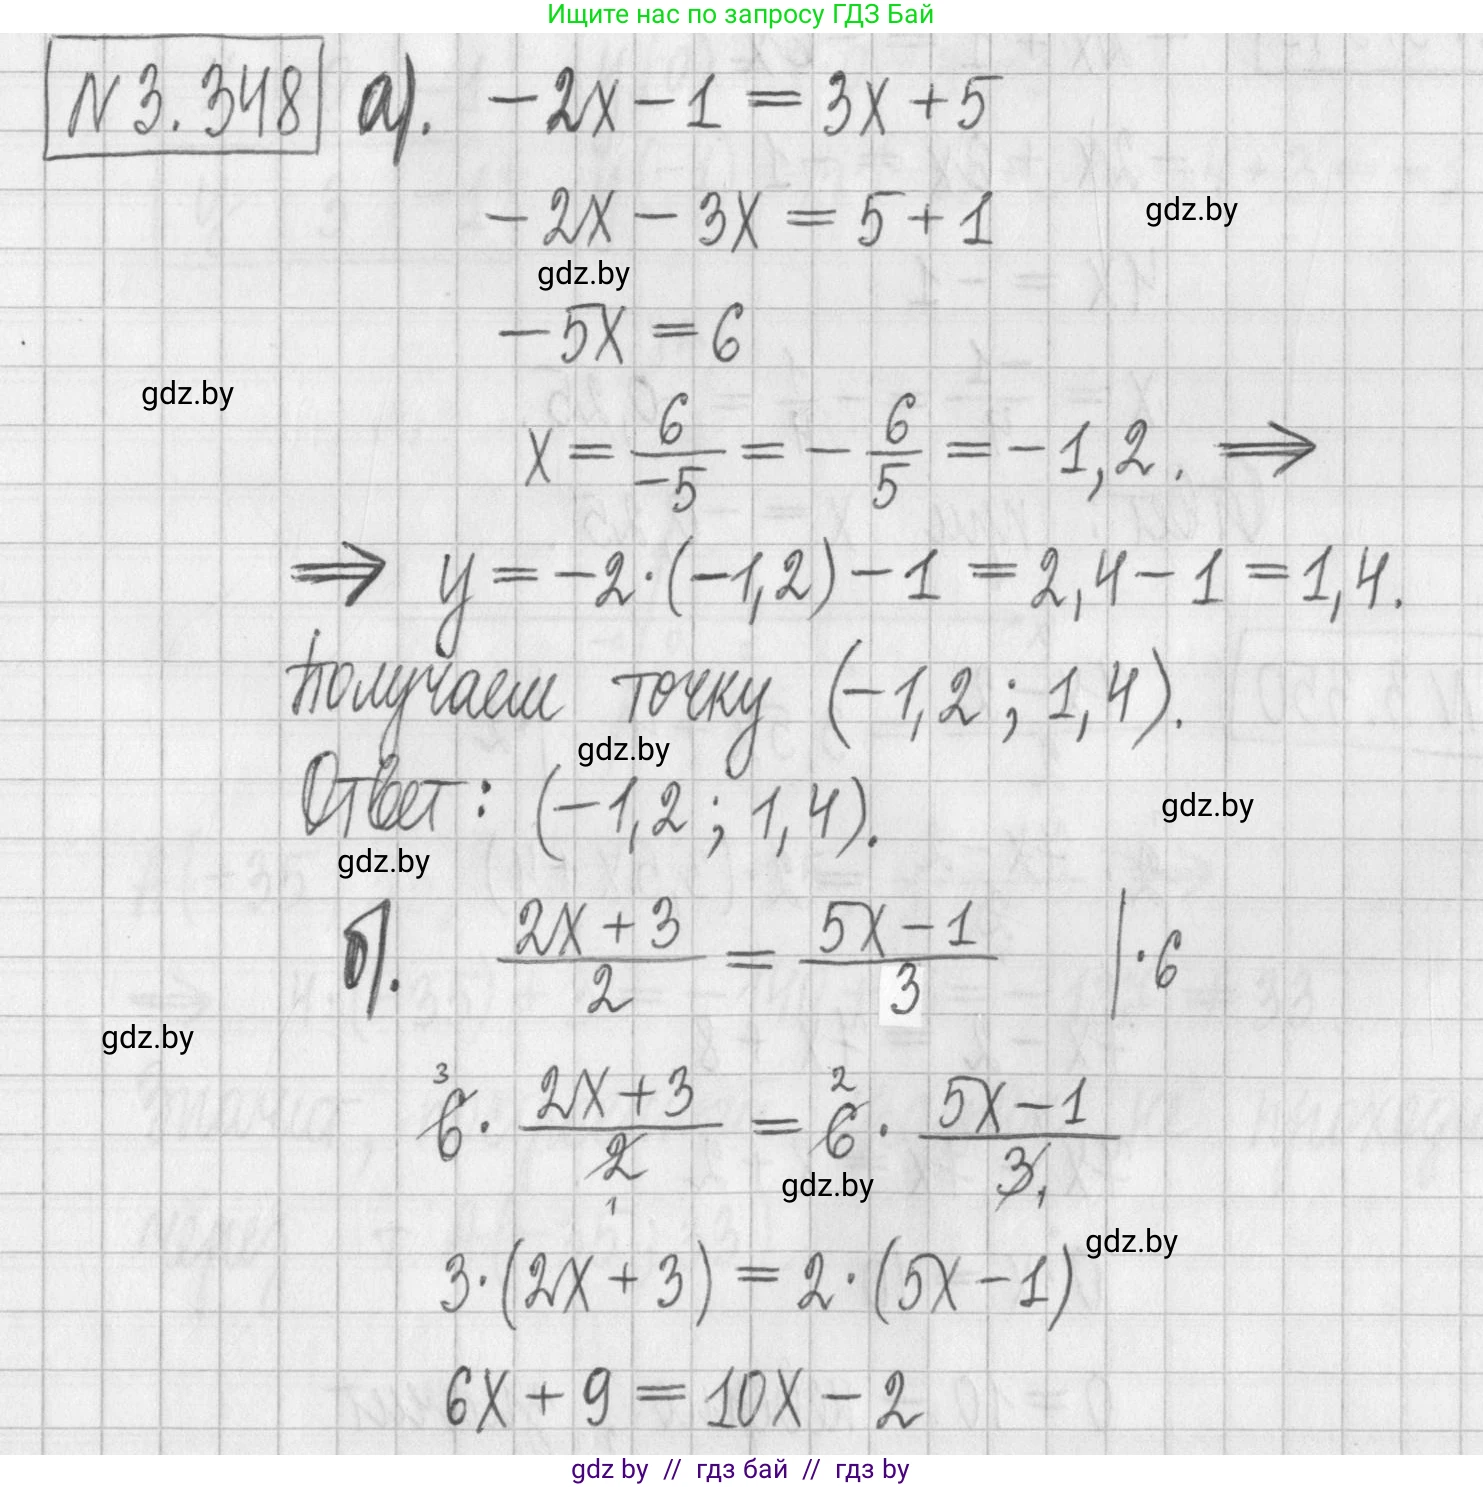 Ищите нас по запросу ГДЗ Бай
N 3.348 а). -2x - 1 = 3x + 5
-2x - 3x = 5 + 1
gdz.by
gdz.by
-5x = 6
gdz.by
x = 6/-5 = -6/5 = -1,2. ⇒
⇒ y = -2·(-1,2) - 1 = 2,4 - 1 = 1,4.
Получаем точку (-1,2; 1,4).
gdz.by
Ответ: (-1,2; 1,4).
gdz.by
gdz.by
б). (2x + 3)/2 = (5x - 1)/3 |·6
gdz.by
³6 · (2x + 3)/2₁ = ²6 · (5x - 1)/3₁
gdz.by
gdz.by
3·(2x + 3) = 2·(5x - 1)
6x + 9 = 10x - 2
gdz by // гдз бай // гдз by